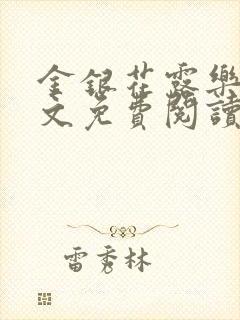 金銀花露樂
文免費閱讀
雷秀林